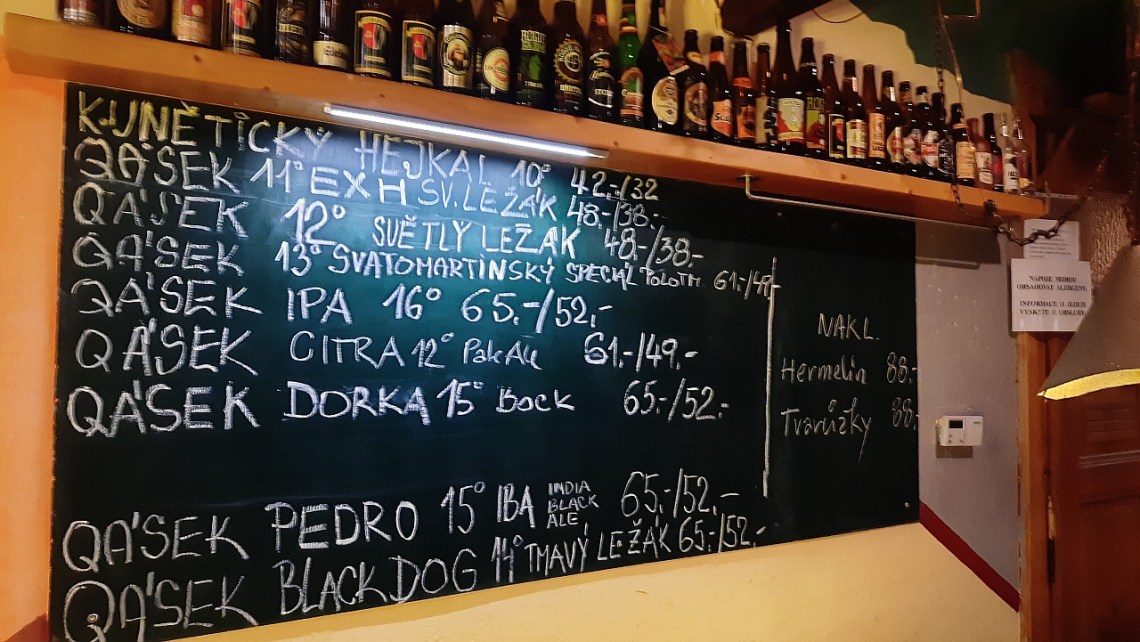 KUNĚTICKÝ HEJKAL 10° 42.-/32
QA'SEK 11° EXH SV. LEŽÁK 48.-/38.-
QA'SEK 12° SVĚTLÝ LEŽÁK 48.-/38.-
QA'SEK 13° SVATOMARTINSKÝ SPECIAL POLOTM 61.-/49.-
QA'SEK IPA 16° 65.-/52.-
QA'SEK CITRA 12° Pale Ale 61.-/49.-
QA'SEK DORKA 15° BOCK 65.-/52.-
QA'SEK PEDRO 15° IBA INDIA BLACK ALE 65.-/52.-
QA'SEK BLACK DOG 14° TMAVÝ LEŽÁK 65.-/52.-
NAKL.
Hermelín 88.-
Tvarůžky 88.-
NÁPOJE MOHOU
OBSAHOVAT ALERGENY.
INFORMACE O JEJICH
VÝSKYTU U OBSLUHY.